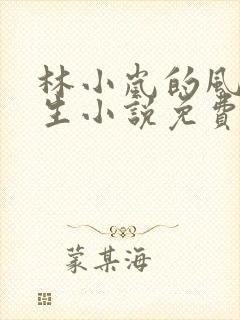 林小嵐的風
生小說免費
蒙某海